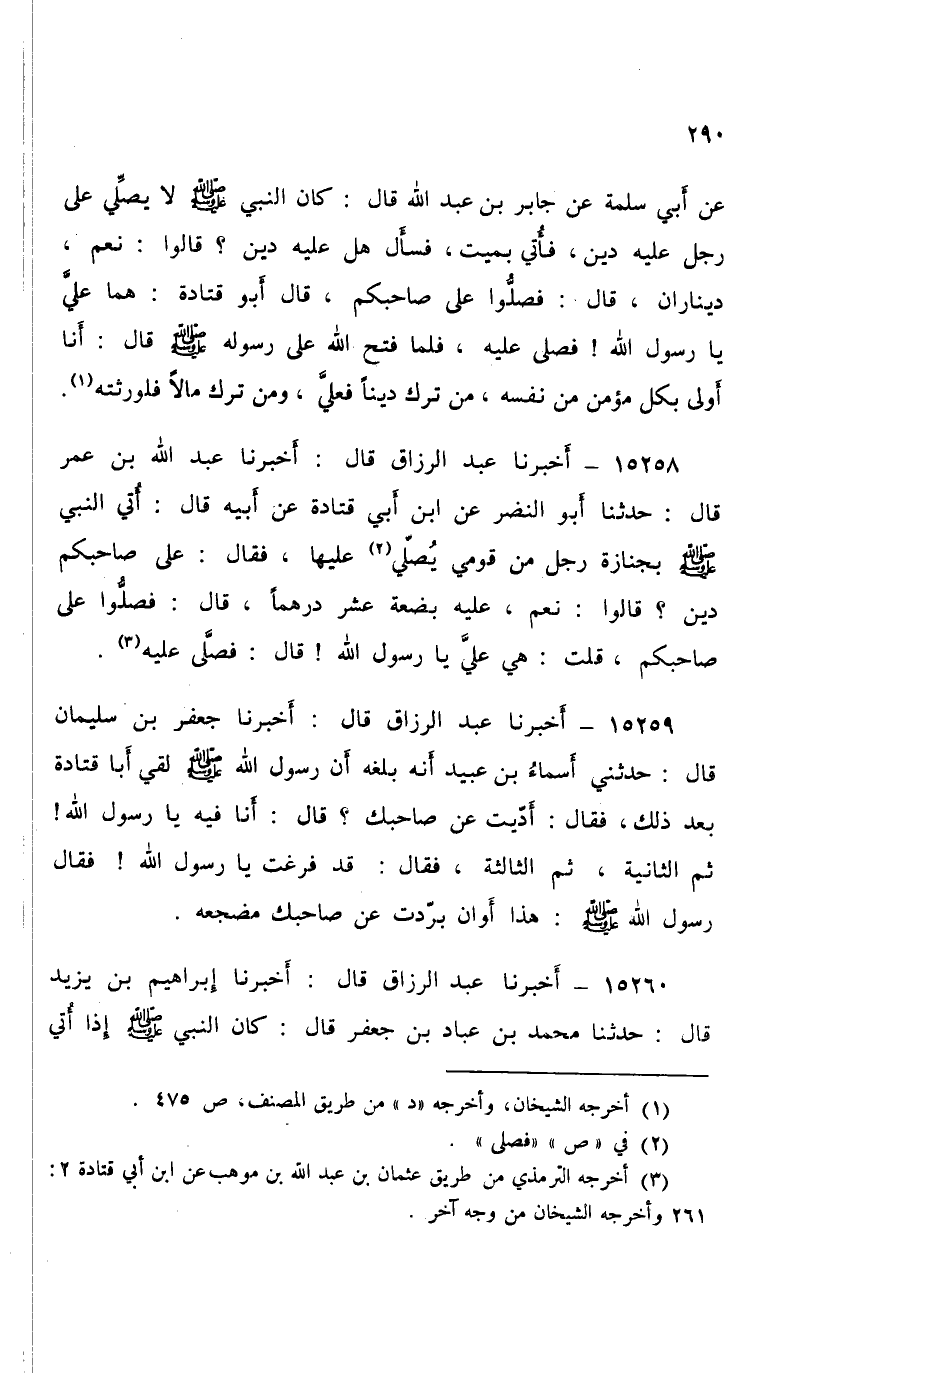 ٢٩٠
عن أَبي سلمة عن جابر بن عبد الله قال : كان النبي ﷺ لا يصلِّي على
رجل عليه دين ، فأُتي بميت ، فسأَل هل عليه دين ؟ قالوا : نعم ،
ديناران ، قال : فصلُّوا على صاحبكم ، قال أَبو قتادة : هما عليَّ
يا رسول الله ! فصلى عليه ، فلما فتح الله على رسوله ﷺ قال : أَنا
أَولى بكل مؤمن من نفسه ، من ترك ديناً فعليَّ ، ومن ترك مالاً فلورثته(١).
١٥٢٥٨ – أَخبرنا عبد الرزاق قال : أَخبرنا عبد الله بن عمر
قال : حدثنا أَبو النضر عن ابن أَبي قتادة عن أَبيه قال : أُتي النبي
ﷺ بجنازة رجل من قومي يُصلّي(٢) عليها ، فقال : على صاحبكم
دين ؟ قالوا : نعم ، عليه بضعة عشر درهماً ، قال : فصلُّوا على
صاحبكم ، قلت : هي عليَّ يا رسول الله ! قال : فصلَّى عليه(٣) .
١٥٢٥٩ – أَخبرنا عبد الرزاق قال : أَخبرنا جعفر بن سليمان
قال : حدثني أَسماءُ بن عبيد أَنه بلغه أَن رسول الله ﷺ لقي أَبا قتادة
بعد ذلك ، فقال : أَدّيت عن صاحبك ؟ قال : أَنا فيه يا رسول الله !
ثم الثانية ، ثم الثالثة ، فقال : قد فرغت يا رسول الله ! فقال
رسول الله ﷺ : هذا أَوان برّدت عن صاحبك مضجعه .
١٥٢٦٠ – أَخبرنا عبد الرزاق قال : أَخبرنا إبراهيم بن يزيد
قال : حدثنا محمد بن عباد بن جعفر قال : كان النبي ﷺ إذا أُتي
(١) أخرجه الشيخان، وأخرجه «د» من طريق المصنف، ص ٤٧٥ .
(٢) في « ص » «فصلى » .
(٣) أخرجه الترمذي من طريق عثمان بن عبد الله بن موهب عن ابن أبي قتادة ٢ :
٢٦١ وأخرجه الشيخان من وجه آخر .